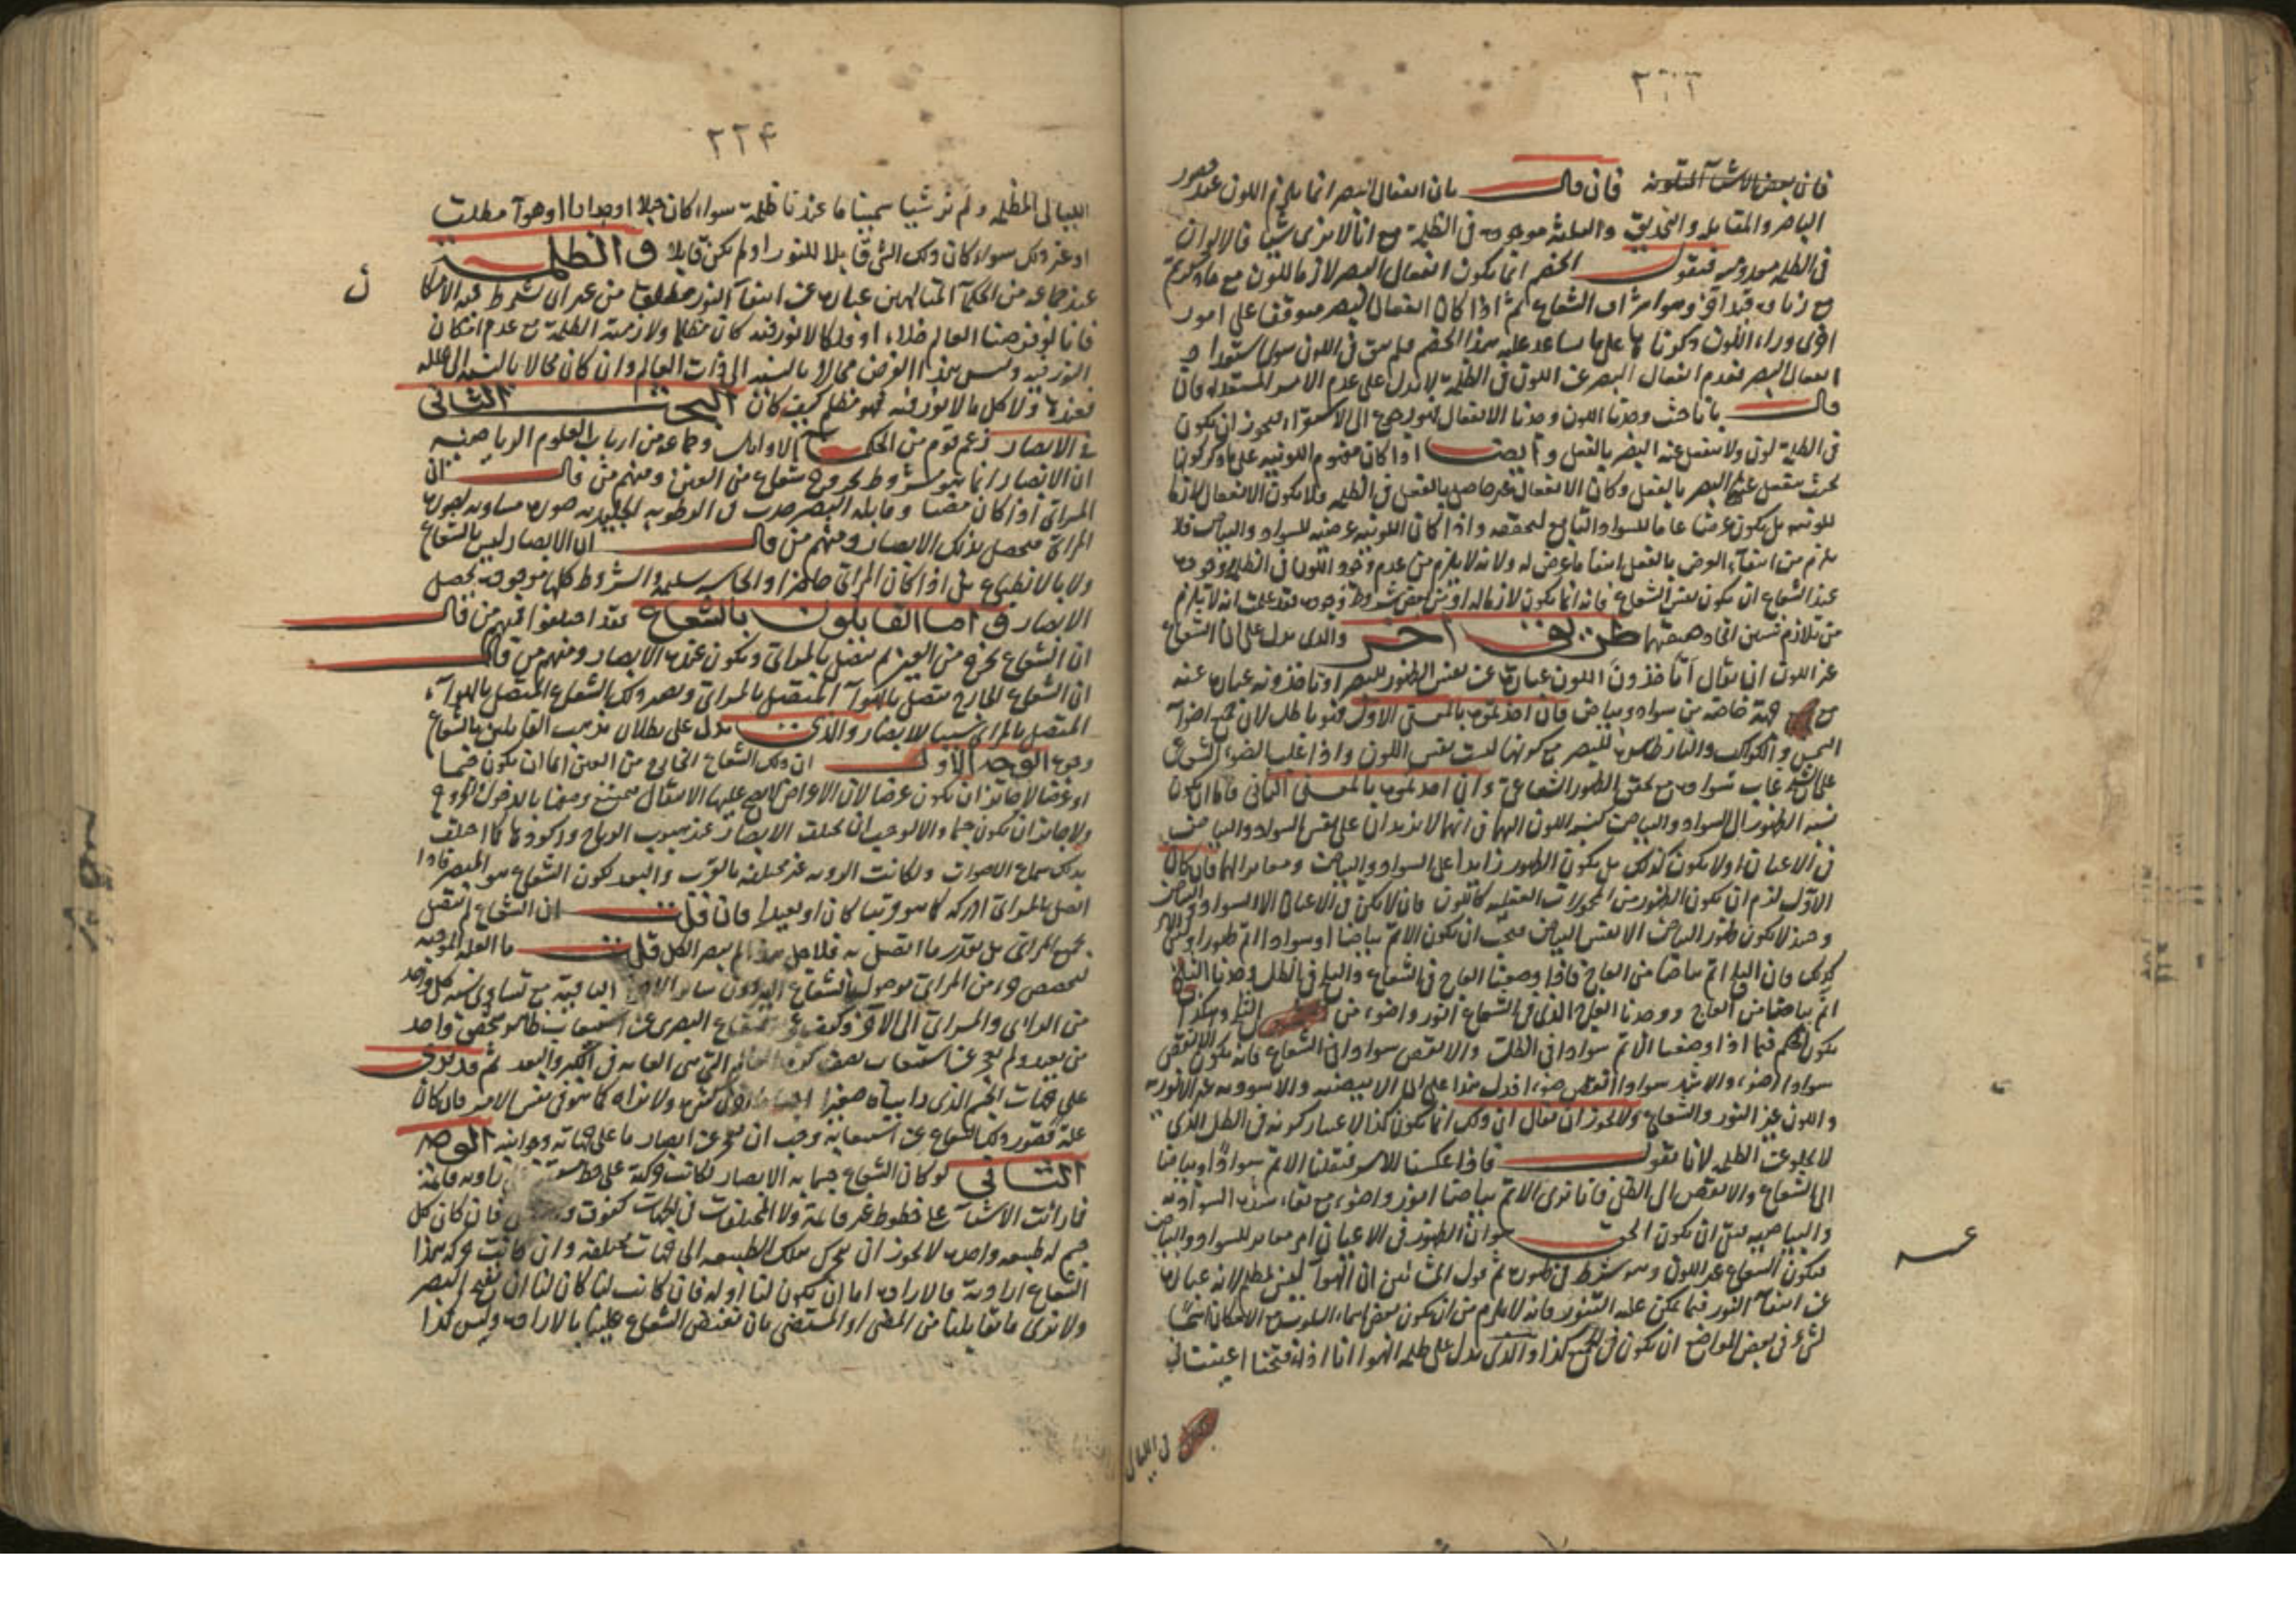 ٢٢٣
فان بعض الاشيآ المتلونه فان قال بان انفعال البصر انما يلزم اللون عند حضور
الباصر والمقابله والتحديق والثلثة موجوده في الظلمة مع انا لا نرى شيئا فالالوان
في الظلمه معدومه فنقول الخصم انما يكون انفعال البصر لازما للون مع ما ذكرتم
مع زياده قيد اخر وهو اشراق الشعاع ثم اذا كان انفعال البصر متوقفا على امور
اخرى وراء اللون ذكرنا ها على ما ساعد عليه هذا الخصم فلم يبق في اللون سوى استعداد
انفعال البصر فعدم انفعال البصر عن اللون في الظلمة لا يدل على عدم الامر المستعد له فان
قال بانا حيث وجدنا اللون وجدنا الانفعال فهو رجوع الى الاستقراء ليجوز ان يكون
في الظلمة لون ولا ينفعل عنه البصر بالفعل وايضا اذا كان مفهوم اللونيه على ما ذكر كونها
بحيث ينفعل عنها البصر بالفعل وكان الانفعال غير حاصل بالفعل في الظلمه ولا يكون الانفعال ذاتيا
للونيه بل يكون عرضا عاما للسواد التابع لتحققه واذا كان اللونيه عرضيه للسواد والبياض فلا
يلزم من انتفاء العرض بالفعل انتفا ما عرض له ولانه لا يلزم من عدم وجود اللون في الظلمة ووجوده
عند الشعاع ان يكون نفس الشعاع فانه انما يكون لازما له او نفس بعض شروط وجوده فقد علمت انه لا يلزم
من تلازم شيئين اتحاد حقيقتهما طريق اخر والذى يدل على ان الشعاع
غير اللون ان يقال انا خذون اللون عبارة عن نفس الظهور للبصر او تاخذونه عبارة عنه
مع جهة خاصه من سواد وبياض فان اخذتموه بالمعنى الاول فهو باطل لان جميع اضوآ
الشمس والكواكب والنار ظاهرة للبصر مع كونها ليست نفس اللون واذا غلب الضوء المشرق
على الشبح غاب سواده مع تحقق الظهور الشعاعي وان اخذتموه بالمعنى الثاني فاما ان يكون
نسبة الظهور الى السواد والبياض كنسبة اللون اليهما في انهما لا يزيدان على نفس السواد والبياض
في الاعيان اولا يكون كذلك بل يكون الظهور زايدا على السواد والبياض ومغايرا لهما فان كان
الاول لزم ان يكون الظهور من المحمولات العقليه كاللون فان لا يكون في الاعيان الا السواد والبياض
وحينئذ لا يكون ظهور البياض الا نفس البياض فيجب ان يكون الاتم بياضا او سوادا اتم ظهورا وليس الامر
كذلك فان الثلج اتم بياضا من العاج فاذا وضعنا العاج في الشعاع والثلج في الظل وجدنا الثلج
اتم بياضا من العاج ووجدنا العاج الذي في الشعاع انور واضوء من الثلج وهكذا
يكون الحكم فيما اذا وضعنا الاتم سوادا في الظل والانقص سوادا في الشعاع فانه يكون الانقص
سوادا اضوء والاشد سوادا انقص ضوءا فدل هذا على ان الابيضيه والاسوديه غير الانوريه
واللون غير النور والشعاع ولا يجوز ان يقال ان ذلك انما يكون كذا لاعتبار كونه في الظل الذي
لا يخلو عن الظلمه لانا نقول فاذا عكسنا الامر فنقلنا الاتم سوادا او بياضا
الى الشعاع والانقص الى الظل فانا نرى الاتم بياضا انور واضوء مع بقاء شدة السواديه
والبياضيه فبقى ان يكون الحق هو ان الظهور في الاعيان امر مغاير للسواد والبياض
فيكون الشعاع غير اللون وهو شرط في ظهوره ثم قول المشائين ان الهوآ ليس بمظلم لانه عبارة
عن انتفآ النور فيما يمكن عليه التنور فانه لا يلزم من ان يكون بعض اسماء السلوب مع الامكان اسما
لشيء في بعض المواضع ان يكون في الجميع كذا والذي يدل على ظلمه الهوا انا اذا فتحنا اعيننا في
في الليالى
عــه
٢٢٤
الليالى المظلمه ولم نر شيئا سمينا ما عندنا ظلمة سواء كان جبلا او جدارا او هوآ مظلمت
او غير ذلك سواء كان ذلك الشي قابلا للنور او لم يكن قابلا فالظلمــة
عند جماعه من الحكمآ المتالهين عبارة عن انتفآ النور مطلقا من غير ان يشترط فيه الامكان
فانا لو فرضنا العالم خلاء او فلكا لا نور فيه كان مظلما ولازمته الظلمة مع عدم امكان
النور فيه وليس هذا الفرض محالا بالنسبه الى ذات العالم وان كان محالا بالنسبه الى علله
فعندها ولا كل ما لا نور فيه فهو مظلم كيف كان البحث الثانى
في الابصار زعم قوم من الحكمآ الاوايل وجماعه من ارباب العلوم الرياضيه
ان الابصار انما هو مشروط بخروج شعاع من العين ومنهم من قال ان
المرائى اذا كان مضيئا وقابله البصر حدث في الرطوبه الجليديه صورة مساويه لصورة
المرائى فيحصل بذلك الابصار ومنهم من قال ان الابصار ليس بالشعاع
ولا بالانطباع بل اذا كان المرائي حاضرا والحاسه سليمه والشروط كلها موجوده يحصل
الابصار فاما القايلون بالشعاع فقد اختلفوا فمنهم من قال
ان الشعاع يخرج من العين ثم يتصل بالمرائى ويكون عنده الابصار ومنهم من قال
ان الشعاع الخارج يتصل بالهوآ المتصل بالمرائى ويصير ذلك الشعاع المتصل بالهوآ
المتصل بالمرائى سببا للابصار والذى يدل على بطلان مذهب القايلين بالشعاع
وجوه الوجه الاول ان ذلك الشعاع الخارج من العين اما ان يكون جسما
او عرضا لا جايز ان يكون عرضا لان الاعراض لا يصح عليها الانتقال ووصفها بالدخول والخروج
ولا جايز ان يكون جسما والا لوجب ان يختلف الابصار عند هبوب الرياح وركودها كما اختلف
بذلك سماع الاصوات ولكانت الرويه غير مختلفه بالقرب والبعد لكون الشعاع هو المبصر فاذا
اتصل بالمرائى ادركه كما هو قريبا كان او بعيدا فان قلت ان الشعاع لم يتصل
بجميع المرائى بل بقدر ما اتصل به فلاجل هذا لم يبصر الكل قلت ما العلة الموجبه
لتخصص جزء من المرائى بوصول الشعاع اليه دون ساير الاجزاء الباقية مع تساوى نسبة كل واحد
من الرائى والمرائى الى الاخر وكيف عجز الشعاع البصرى عن استيعاب ظاهر مخفى واحد
من بعيد ولم يعجز عن استيعاب نصف كرة العالم التي هي الغايه في الكبر والبعد ثم قد نرى
على جهات الجسم الذي راينآه صغيرا ولا نراه كما هو في نفس الامر فان كان
علة قصور ذلك الشعاع عن استيعابه وجب ان يعجز عن ابصار ما على جهاته وجوانبه الوجه
الثانى لو كان الشعاع جسما به الابصار لكانت حركته على خط مستقيم زاويه قايمة
فما رائت الاشيآ على خطوط غير قايمة ولا المختلفات في الجهات كفوق فان كان كل
جسم له طبيعه واحده لا يجوز ان يتحرك بتلك الطبيعه الى جهات مختلفه وان كانت حركة هذا
الشعاع اراديه فالاراده اما ان يكون لنا او له فان كانت لنا كان لنا ان نفتح البصر
ولا نرى ما يقابلنا من المضي او المستضي بان نقبض الشعاع علينا بالاراده وليس كذا